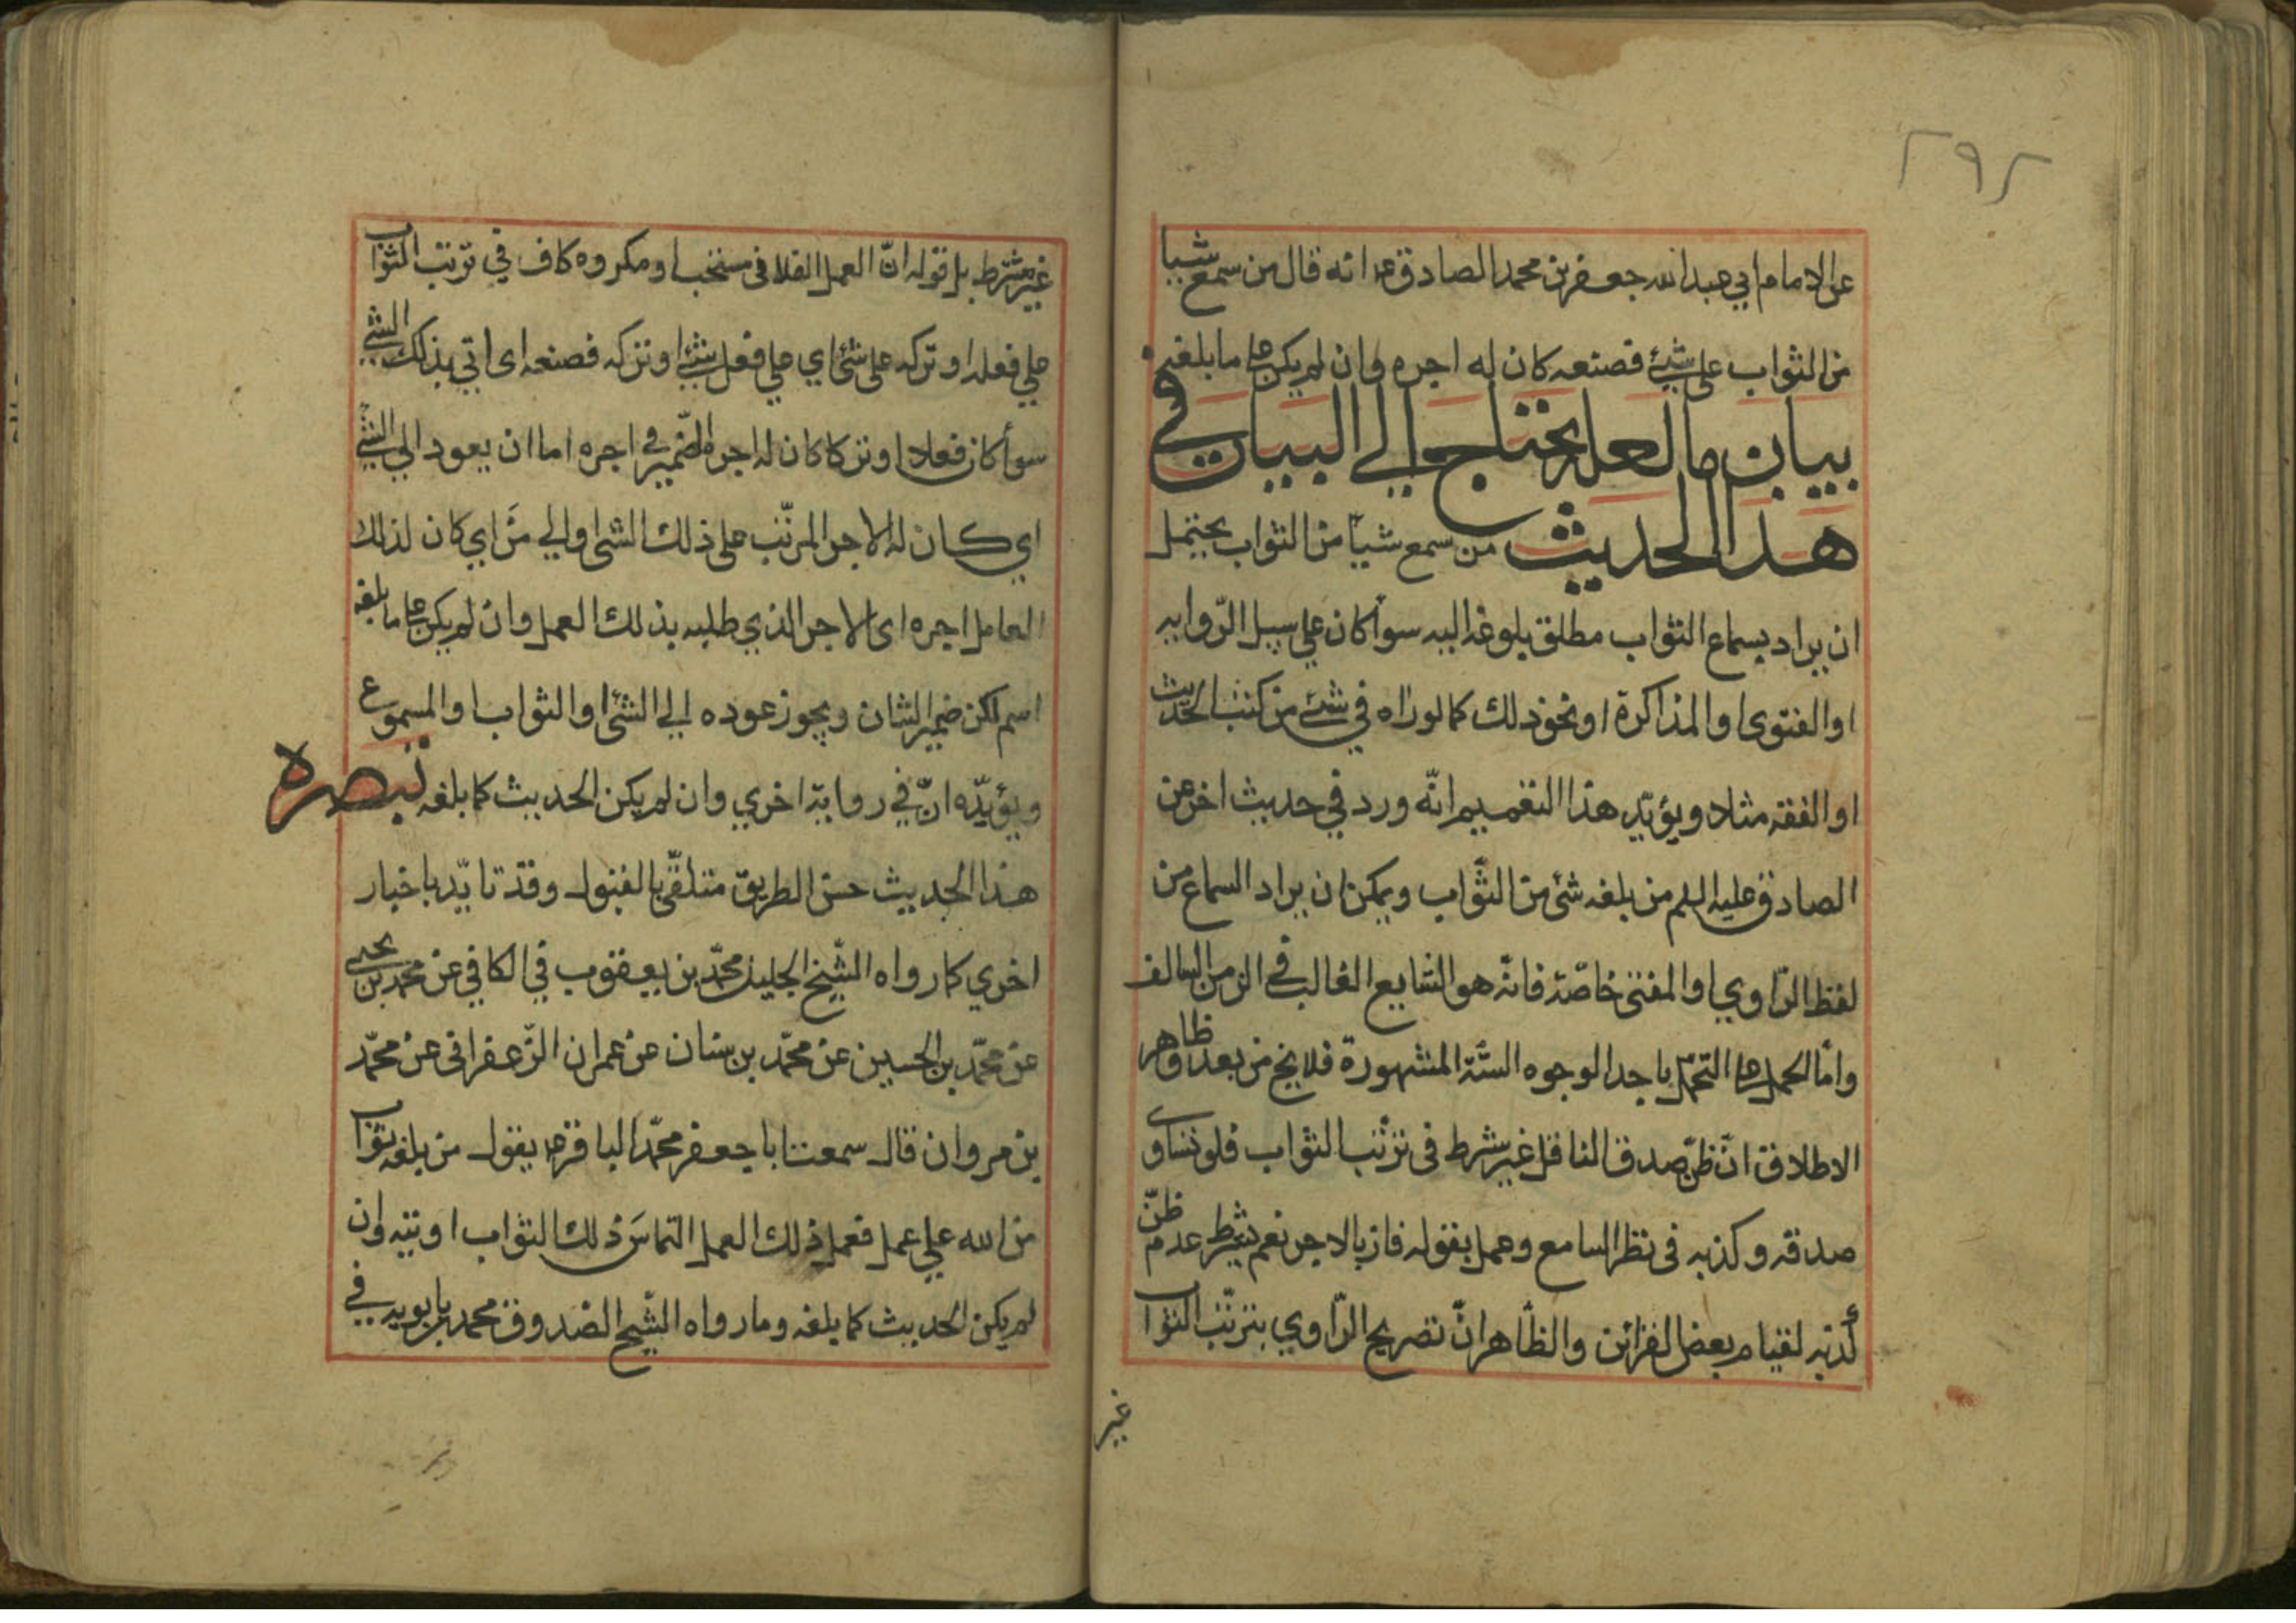 ٢٩٢
عن الامام ابي عبد الله جعفر بن محمد الصادق ع انه قال من سمع شيأ
من الثواب على شئ فصنعه كان له اجره وان لم يكن على ما بلغه
بيان ما لعله يحتاج الي البيان في
هذا الحديث من سمع شيأ من الثواب يحتمل
ان يراد بسماع الثواب مطلق بلوغه اليه سوأ كان علي سبيل الرّوايه
او الفتوى او المذاكرة او نحو ذلك كما لو راه في شئ من كتب الحديث
او الفقه مثلا ويؤيّد هذا التعميم انّه ورد في حديث اخر عن
الصادق عليه السلم من بلغه شئ من الثّواب ويمكن ان يراد السماع من
لفظ الرّاوي او المفتى خاصّة فانّه هو الشايع الغالب في الزمن السالف
وامّا الحمل على التحمّل باحد الوجوه الستّة المشهورة فلا يخ من بعد وظاهر
الاطلاق انّ ظنّ صدق الناقل غير شرط فى ترتّب الثواب فلو تساوى
صدقه وكذبه فى نظر السامع وعمل بقوله فاز بالاجر نعم يشترط عدم ظنّ
كذبه لقيام بعض القرائن والظّاهر انّ تصريح الرّاوي بترتّب الثواب
غير
غير مشترط بل قوله انّ العمل الفلانى مستحب او مكروه كاف في ترتب الثواب
علي فعله او تركه على شئ اي علي فعل شئ او تركه فصنعه اى اتي بذلك الشئ
سوأ كان فعلا او تركا كان له اجره الضّمير في اجره اما ان يعود الي الشئ
اي كان له الاجر المرتّب على ذلك الشئ او الي مَن اي كان لذلك
العامل اجره اى الاجر الذي طلبه بذلك العمل وان لم يكن على ما بلغه
اسم لكن ضمير الشان ويجوز عوده الي الشئ او الثواب او المسموع
ويؤيّده انّ في رواية اخري وان لم يكن الحديث كما بلغه تبصره
هذا الحديث حسن الطريق متلقّى بالقبول وقد تايّد باخبار
اخري كما رواه الشّيخ الجليل محمّد بن يعقوب في الكافي عن محمد بن يحيى
عن محمّد بن الحسين عن محمّد بن سنان عن عمران الزّعفرانى عن محمّد
بن مروان قال سمعت ابا جعفر محمّد الباقر ع يقول من بلغه ثواب
من الله علي عمل فعمل ذلك العمل التماسَ ذلك الثواب اوتيه وان
لم يكن الحديث كما بلغه وما رواه الشّيخ الصّدوق محمد بن بابويه في